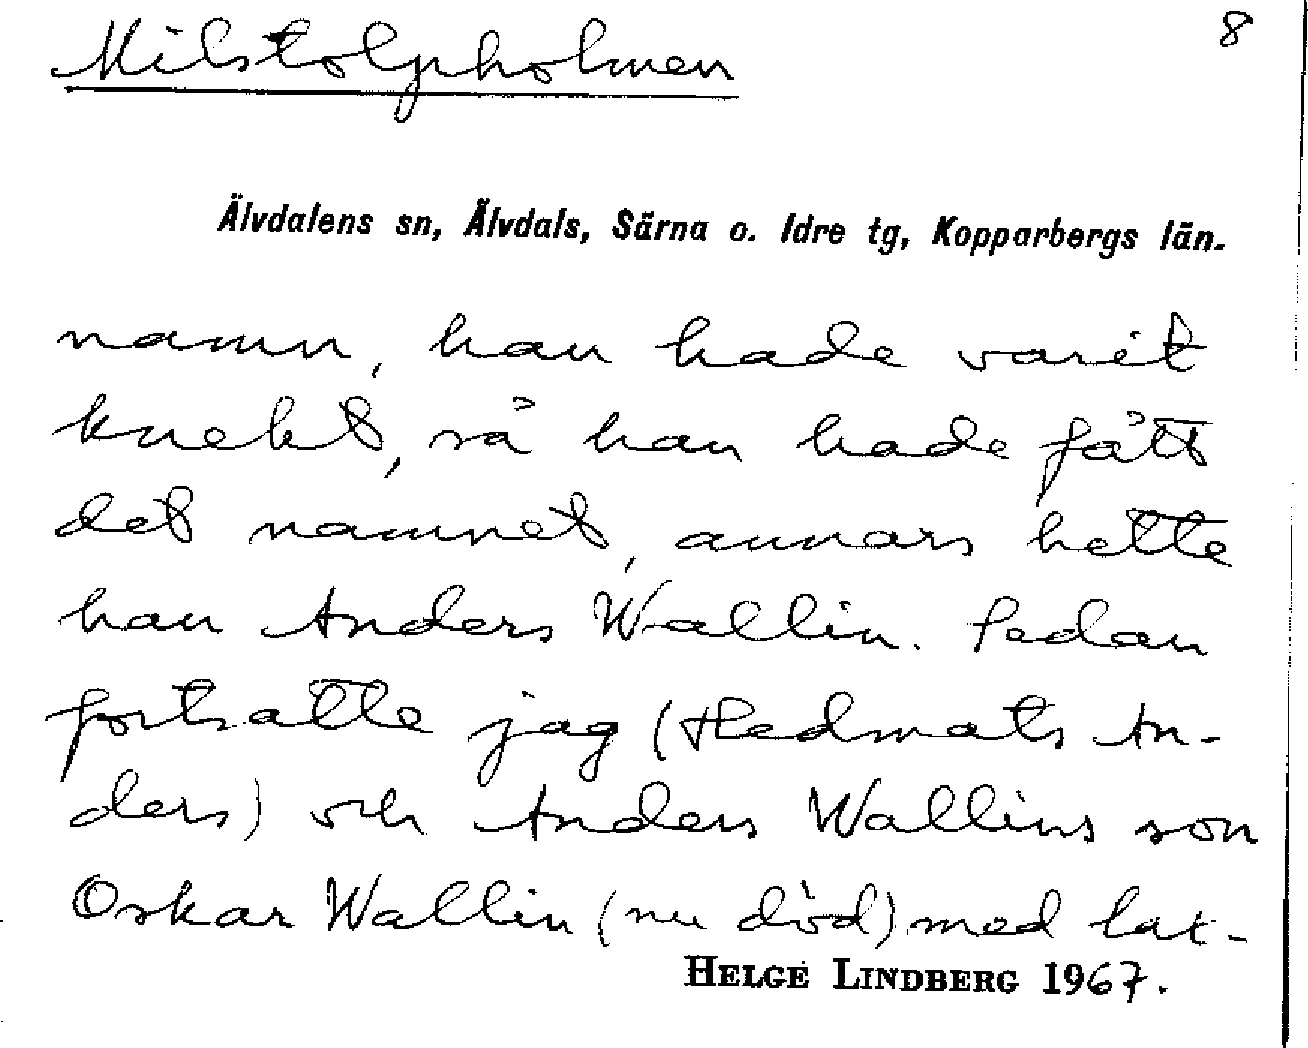 Milstolpholmen 8
Älvdalens sn, Älvdals, Särna o. Idre tg, Kopparbergs län.
namn, han hade varit
knekt, så han hade fått
det namnet, annars hette
han Anders Wallin. Sedan
fortsatte jag (Hedmats An-
ders) och Anders Wallins son
Oskar Wallin (nu död) med lax-
HELGE LINDBERG 1967.